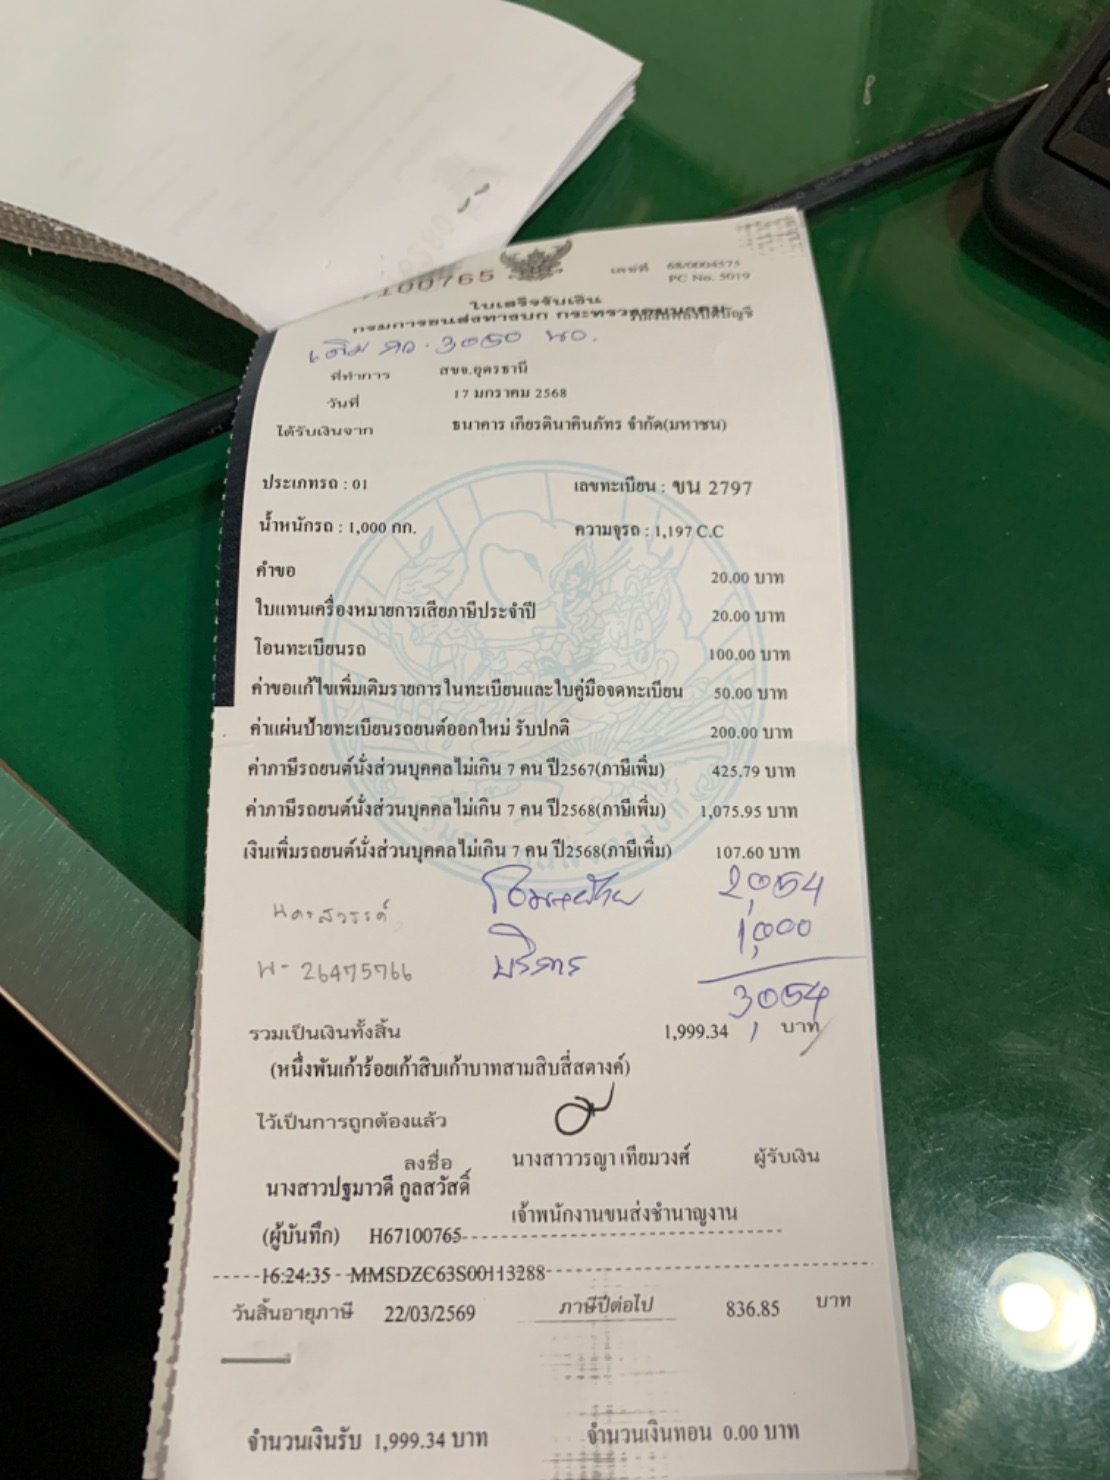 7100765
เลขที่ 68/0004575
PC No. 5019
ใบเสร็จรับเงิน
กรมการขนส่งทางบก กระทรวงคมนาคม
รับเงินหลังปิดบัญชี
3050
ที่ทำการ สขจ.อุดรธานี
วันที่ 17 มกราคม 2568
ได้รับเงินจาก ธนาคาร เกียรตินาคินภัทร จำกัด(มหาชน)
ประเภทรถ : 01 เลขทะเบียน : ขน 2797
น้ำหนักรถ : 1,000 กก. ความจุรถ : 1,197 C.C
คำขอ 20.00 บาท
ใบแทนเครื่องหมายการเสียภาษีประจำปี 20.00 บาท
โอนทะเบียนรถ 100.00 บาท
ค่าขอแก้ไขเพิ่มเติมรายการในทะเบียนและใบคู่มือจดทะเบียน 50.00 บาท
ค่าแผ่นป้ายทะเบียนรถยนต์ออกใหม่ รับปกติ 200.00 บาท
ค่าภาษีรถยนต์นั่งส่วนบุคคลไม่เกิน 7 คน ปี2567(ภาษีเพิ่ม) 425.79 บาท
ค่าภาษีรถยนต์นั่งส่วนบุคคลไม่เกิน 7 คน ปี2568(ภาษีเพิ่ม) 1,075.95 บาท
เงินเพิ่มรถยนต์นั่งส่วนบุคคลไม่เกิน 7 คน ปี2568(ภาษีเพิ่ม) 107.60 บาท
นครสวรรค์ 2,054
บริการ 1,000
พ- 26475766
3,054
รวมเป็นเงินทั้งสิ้น 1,999.34 บาท
(หนึ่งพันเก้าร้อยเก้าสิบเก้าบาทสามสิบสี่สตางค์)
ไว้เป็นการถูกต้องแล้ว
ลงชื่อ นางสาววรญา เทียมวงศ์ ผู้รับเงิน
นางสาวปฐมาวดี กูลสวัสดิ์
เจ้าพนักงานขนส่งชำนาญงาน
(ผู้บันทึก) H67100765
16:24:35 MMSDZC63S00113288
วันสิ้นอายุภาษี 22/03/2569 ภาษีปีต่อไป 836.85 บาท
จำนวนเงินรับ 1,999.34 บาท จำนวนเงินทอน 0.00 บาท